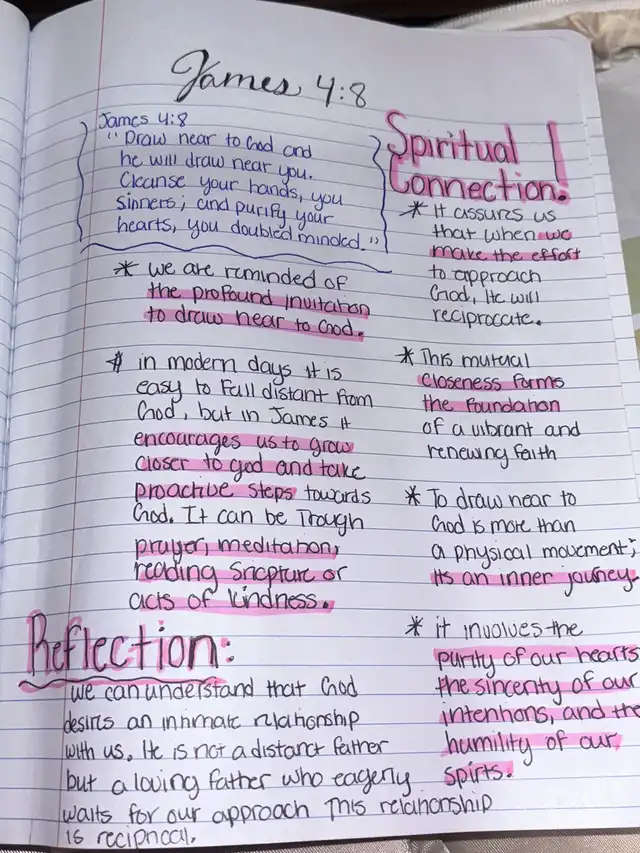 James 4:8
James 4:8
"Draw near to God and
he will draw near you.
Cleanse your hands, you
sinners; and purify your
hearts, you doubled minded."
* we are reminded of
the profound invitation
to draw near to God.
* in modern days it is
easy to fall distant from
God, but in James it
encourages us to grow
closer to god and take
proactive steps towards
God. It can be Trough
prayer, meditation,
reading Sricpture or
acts of kindness.
Reflection:
we can understand that God
desires an intimate relationship
with us. He is not a distant father
but a loving father who eagerly
waits for our approach This relationship
is reciprical.
Spiritual
Connection!
* It assures us
that when we
make the effort
to approach
God, He will
reciprocate.
* This mutual
closeness forms
the foundation
of a vibrant and
renewing faith
* To draw near to
God is more than
a physical movement;
its an inner journey.
* it involves the
purity of our hearts
the sincerity of our
intentions, and the
humility of our
spirts.